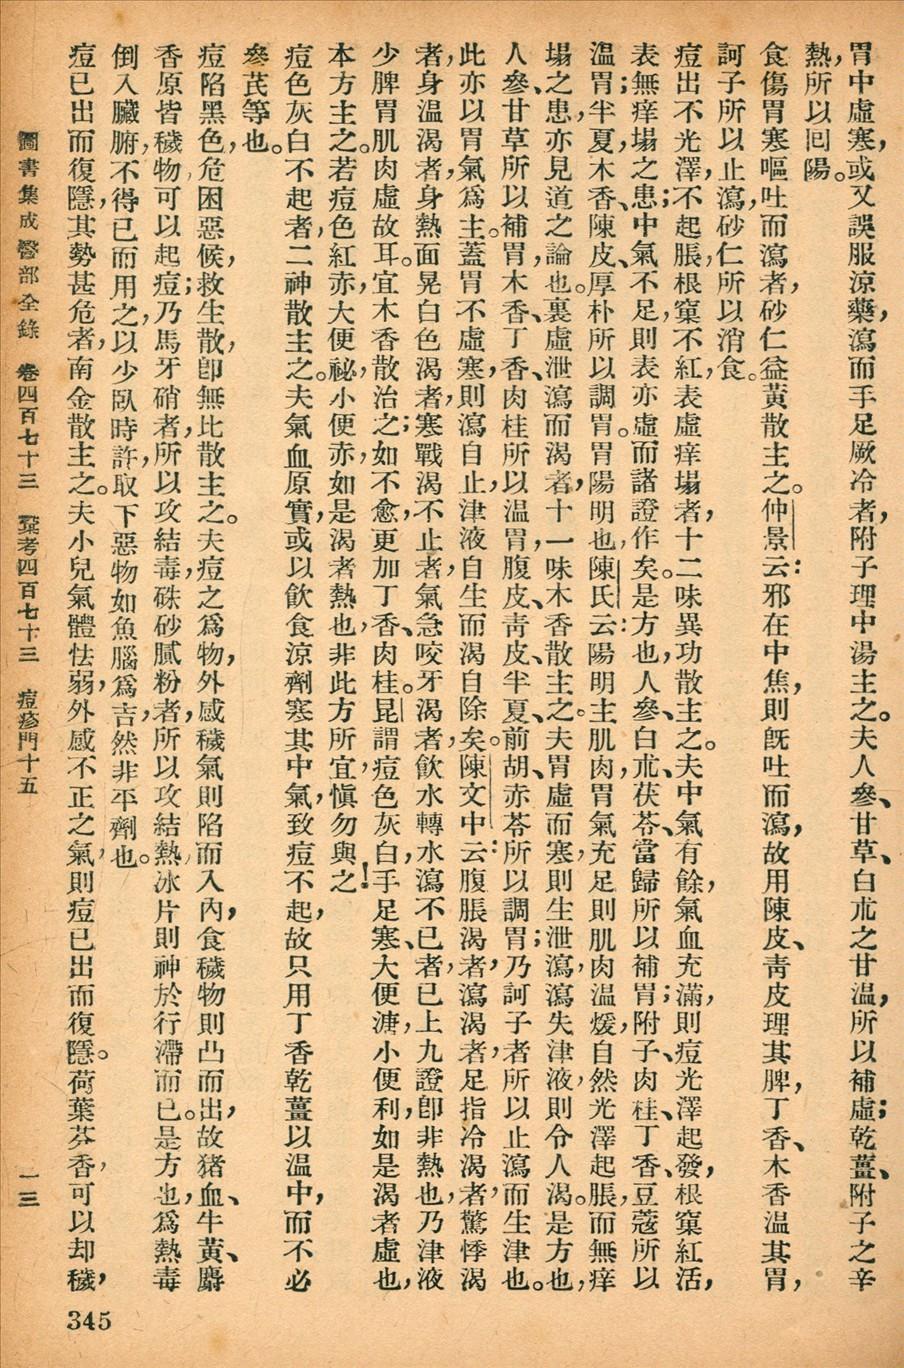 胃中虛寒，或又誤服涼藥，瀉而手足厥冷者，附子理中湯主之。夫人參、甘草、白朮之甘溫，所以補虛；乾薑、附子之辛
熱，所以囘陽。
食傷胃寒嘔吐而瀉者，砂仁益黃散主之。仲景云：邪在中焦，則旣吐而瀉，故用陳皮、靑皮理其脾，丁香、木香溫其胃，
訶子所以止瀉，砂仁所以消食。
痘出不光澤，不起脹，根窠不紅，表虛痒塌者，十二味異功散主之。夫中氣有餘，氣血充滿，則痘光澤起發，根窠紅活，
表無痒塌之患；中氣不足，則表亦虛而諸證作矣。是方也，人參、白朮、茯苓、當歸所以補胃；附子、肉桂、丁香、豆蔻所以
溫胃；半夏、木香、陳皮、厚朴所以調胃。胃陽明也，陳氏云：陽明主肌肉，胃氣充足則肌肉溫煖，自然光澤起脹，而無痒
塌之患，亦見道之論也。裏虛泄瀉而渴者，十一味木香散主之。夫胃虛而寒，則生泄瀉，瀉失津液，則令人渴。是方也，
人參、甘草所以補胃，木香、丁香、肉桂所以溫胃，腹皮、靑皮、半夏、前胡、赤苓所以調胃；乃訶子者，所以止瀉而生津也。
此亦以胃氣爲主。蓋胃不虛寒，則瀉自止，津液自生而渴自除矣。陳文中云：腹脹渴者，瀉渴者，足指冷渴者，驚悸渴
者，身溫渴者，身熱面晃白色渴者，寒戰渴不止者，氣急咬牙渴者，飲水轉水瀉不已者，已上九證卽非熱也，乃津液
少，脾胃肌肉虛故耳。宜木香散治之；如不愈，更加丁香、肉桂。昆謂痘色灰白，手足寒，大便溏，小便利，如是渴者虛也，
本方主之。若痘色紅赤，大便祕，小便赤，如是渴者熱也，非此方所宜，愼勿與之！
痘色灰白不起者，二神散主之。夫氣血原實，或以飲食涼劑寒其中氣，致痘不起，故只用丁香乾薑以溫中，而不必
參芪等也。
痘陷黑色，危困惡候，救生散，卽無比散主之。夫痘之爲物，外感穢氣則陷而入內，食穢物則凸而出，故猪血、牛黃、麝
香原皆穢物，可以起痘；乃馬牙硝者，所以攻結毒，硃砂膩粉者，所以攻結熱，冰片則神於行滯而已。是方也，爲熱毒
倒入臟腑，不得已而用之，以少臥時許，取下惡物如魚腦爲吉，然非平劑也。
痘已出而復隱，其勢甚危者，南金散主之。夫小兒氣體怯弱，外感不正之氣，則痘已出而復隱。荷葉芬香，可以却穢，
圖書集成醫部全錄　卷四百七十三　彙考四百七十三　痘疹門十五　一三
345